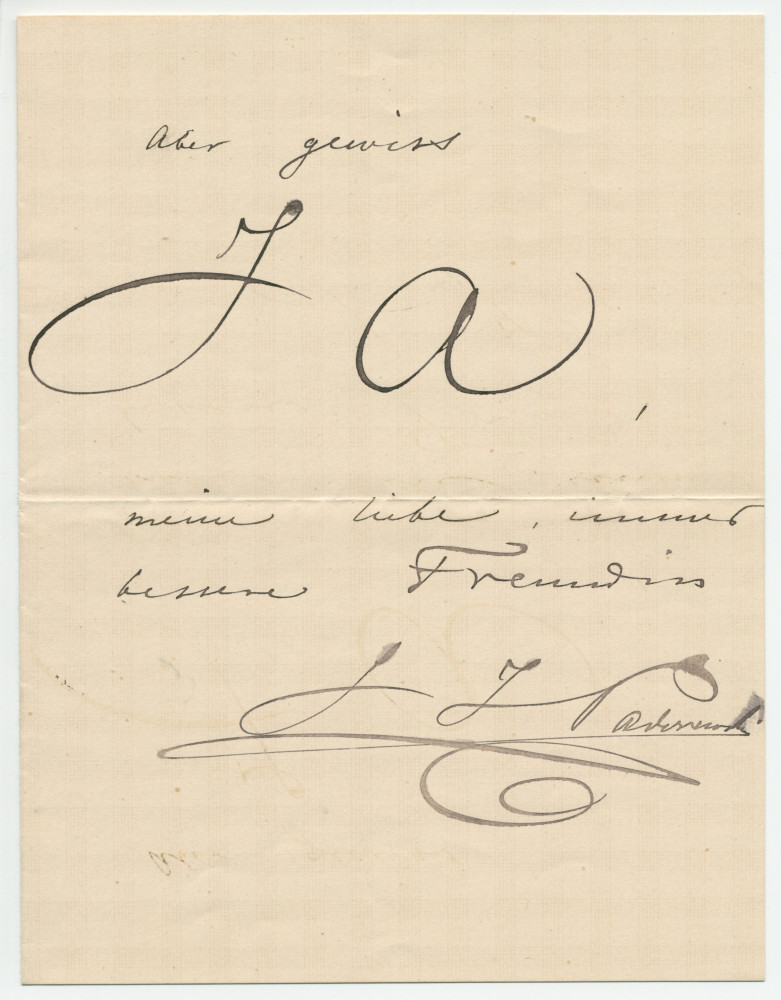 Aber gewiss
Ja,
meine liebe, immer
bessere Freundin
I J Paderewski